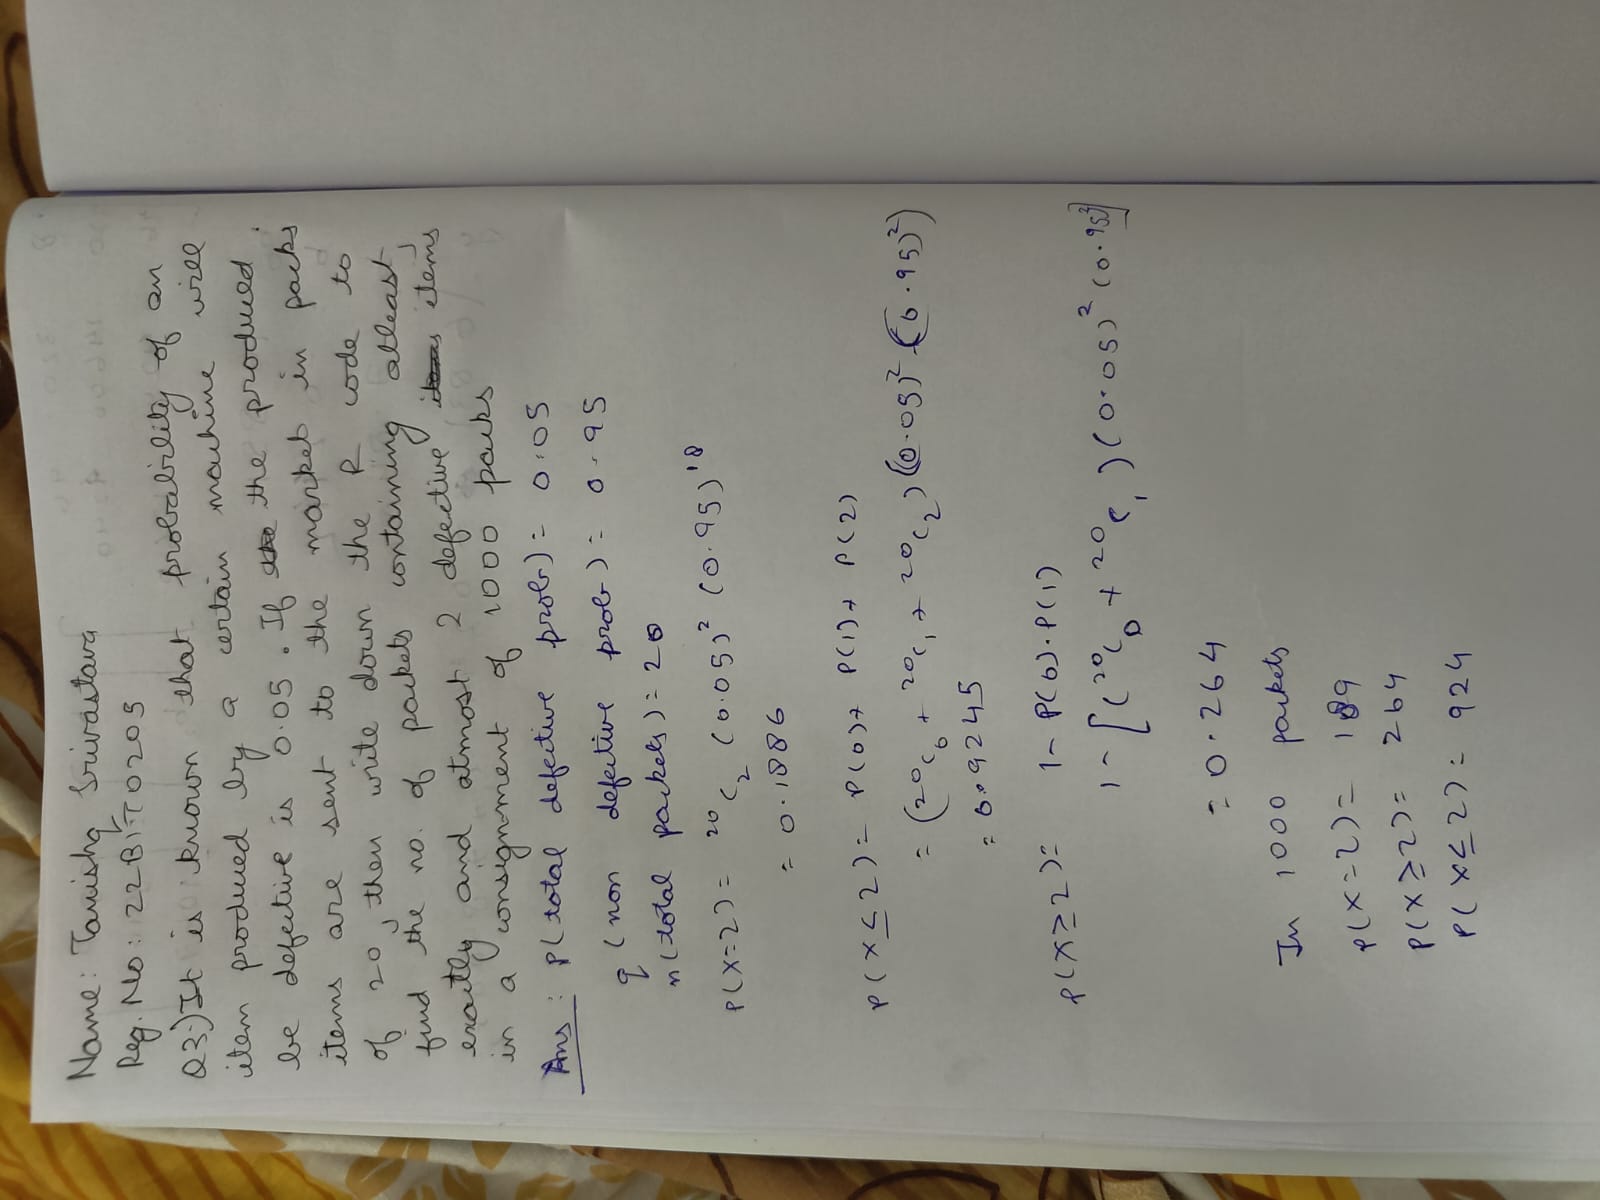 Name: Tanishq Srivastava
Reg. No: 22BIT0205
Q3:)It is known that probability of an
item produced by a certain machine will
be defective is 0.05. If the the produced
items are sent to the market in packs
of 20, then write down the R code to
find the no. of packets containing atleast,
exactly and atmost 2 defective items items
in a consignment of 1000 packs
Ans: P(total defective prob) = 0.05
q (non defective prob) = 0.95
n(total packets) = 20
P(X=2) = ²⁰C₂ (0.05)² (0.95)¹⁸
= 0.1886
P(X≤2) = P(0)+ P(1)+ P(2)
= (²⁰C₀ + ²⁰C₁ + ²⁰C₂)((0.05)² (0.95)²)
= 0.9245
P(X≥2) = 1- P(0).P(1)
1-[(²⁰C₀ + ²⁰C₁)(0.05)² (0.95)²]
= 0.264
In 1000 packets
P(X=2) = 189
P(X≥2) = 264
P(X≤2) = 924